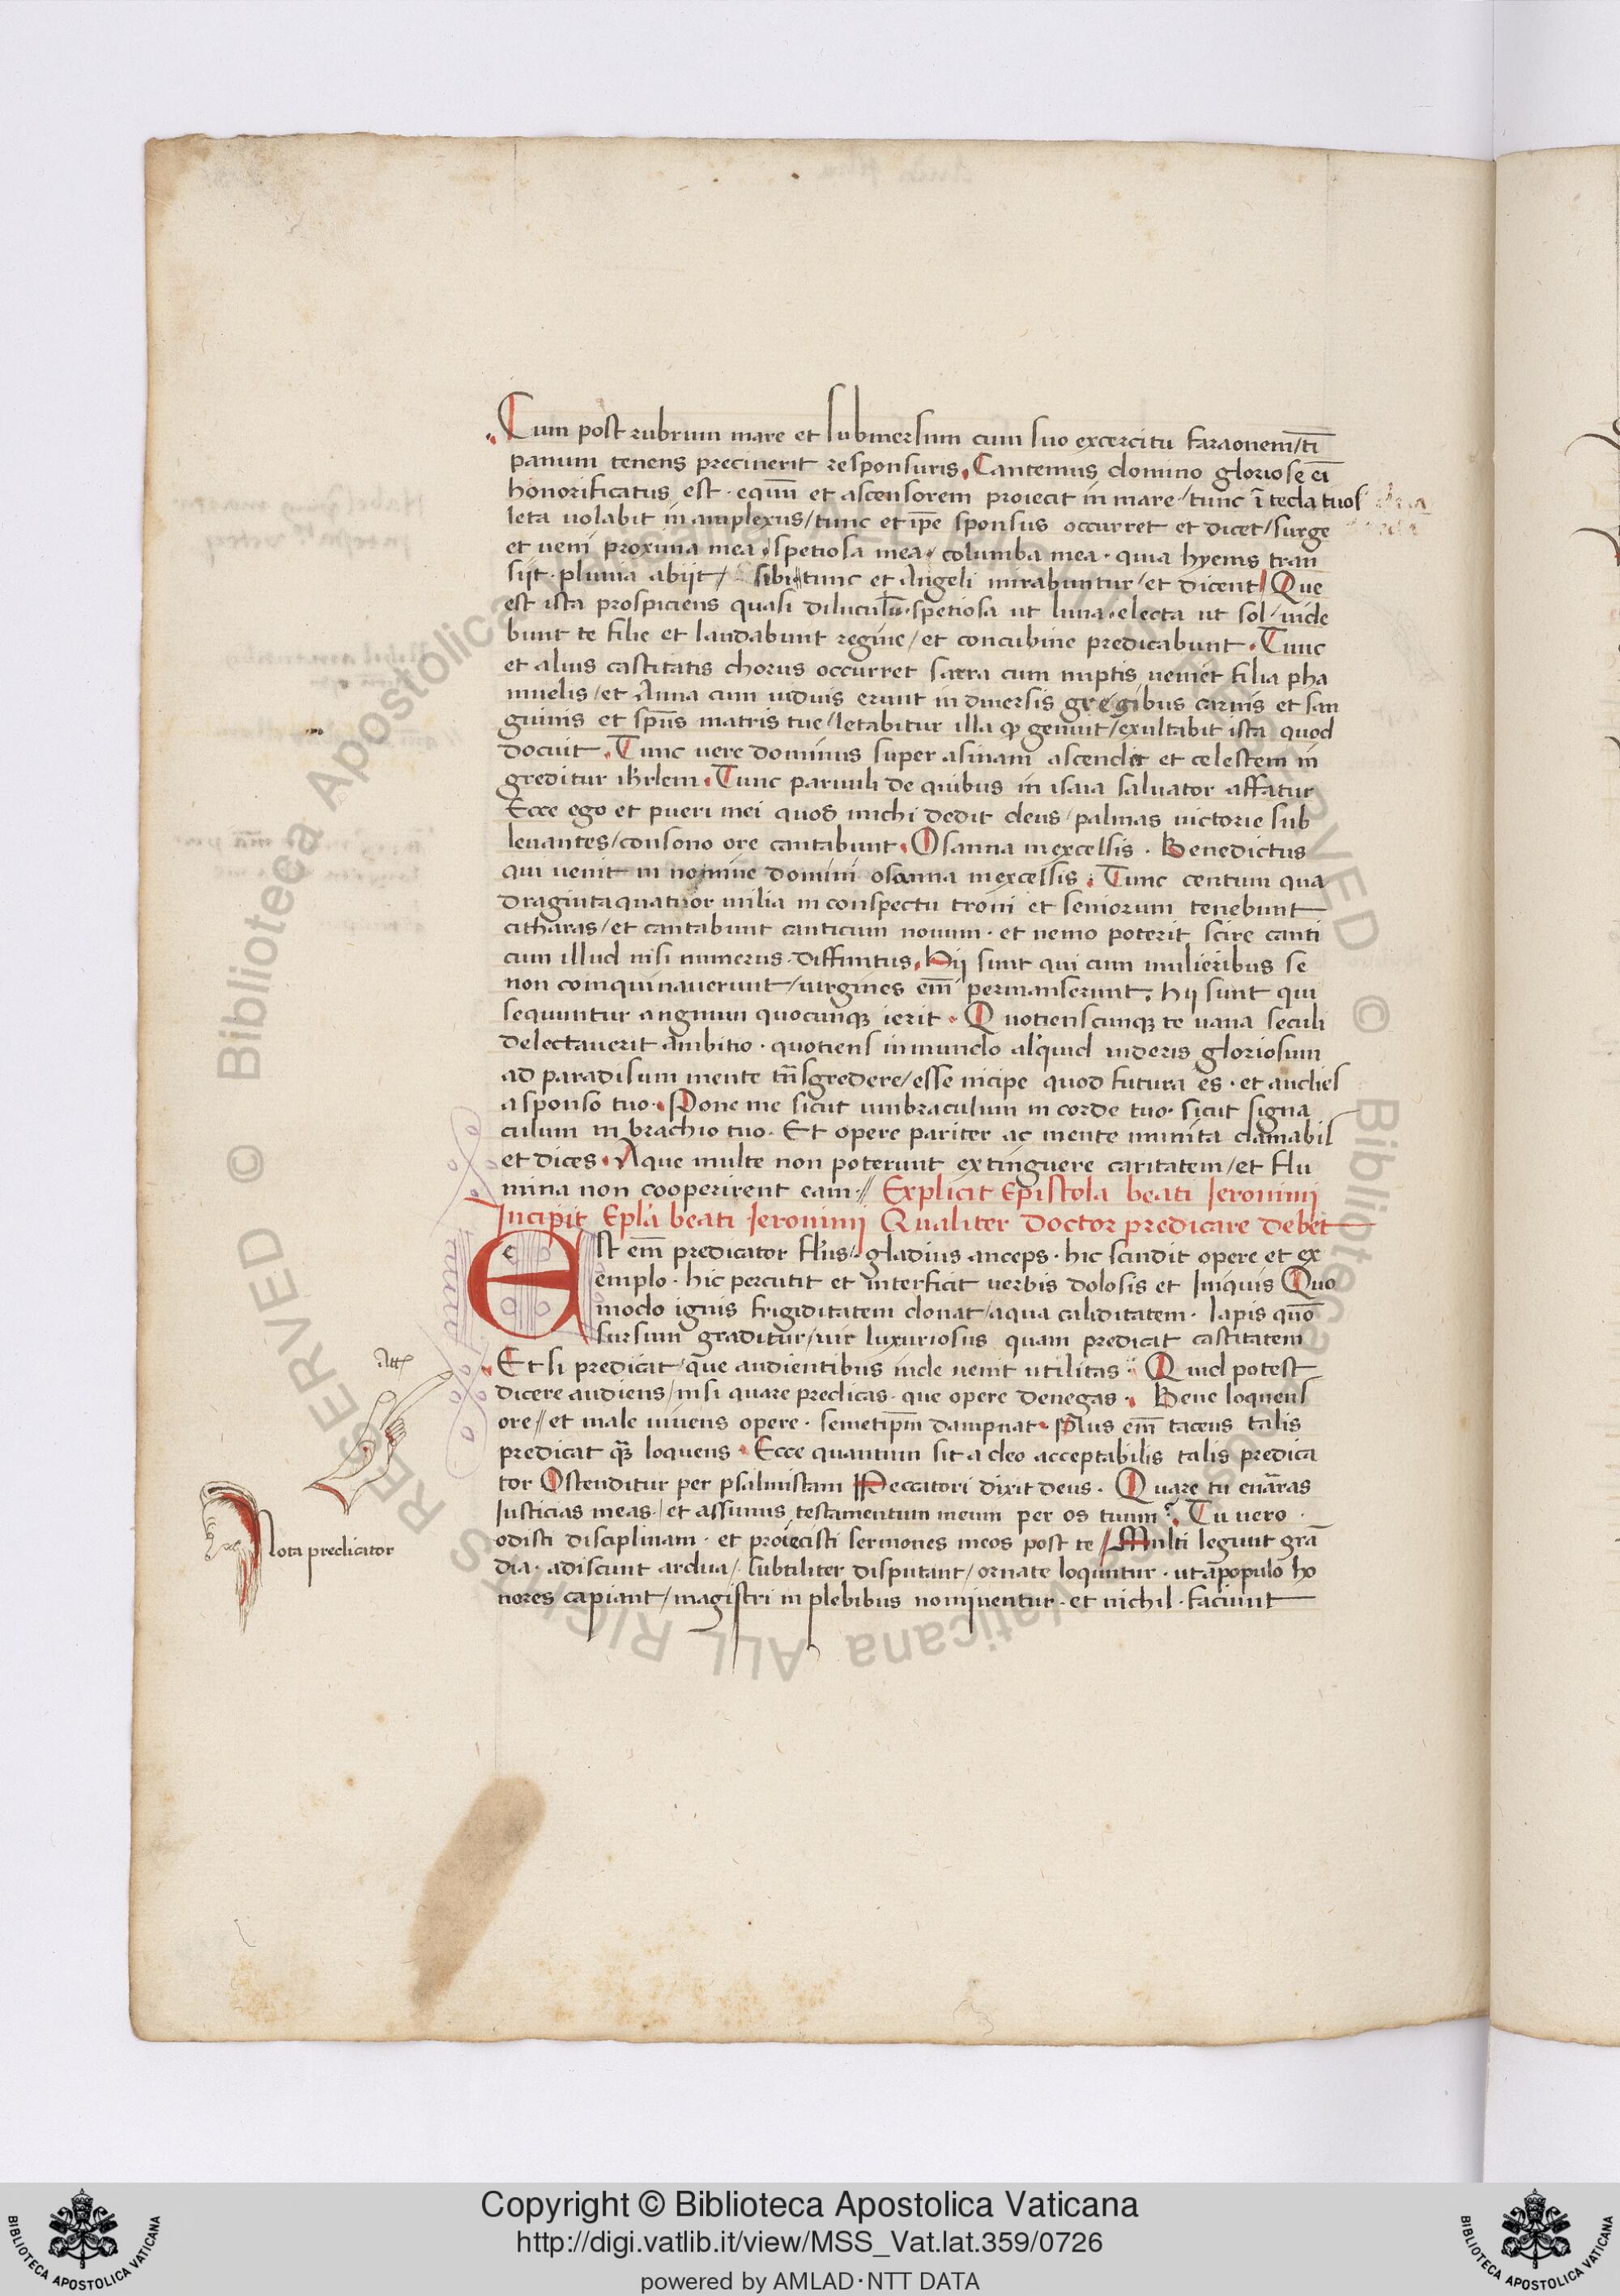 Cum post rubrum mare et submersum cum suo excercitu faraonem/ti̅
panum tenens precinerit responsuris. Cantemus domino gloriose ei̅
honorificatus est · equu̅ et ascensorem proiecit in mare/tunc i̅ tecla tuos
leta uolabit in amplexus/tunc et ip̅e sponsus occurret et dicet/surge
et ueni proxima mea spetiosa mea columba mea · quia hyems tran
siit · pluuia abijt/ sibi tunc et Angeli mirabuntur/et dicent/ Que
est ista prospiciens quasi diluculu̅ · spetiosa ut luna · electa ut sol/uide
bunt te filie et laudabunt regine/et concubine predicabunt · Tunc
et alius castitatis chorus occurret sarra cum nuptis ueniet filia pha
nuelis/et Anna cum uiduis erunt in diuersis gregibus carnis et san
guinis et sp̅us matris tue/letabitur illa ꝙ genuit/exultabit ista quod
docuit · Tunc uere dominus super asinam ascendit et celestem in
greditur ih̅rlem · Tunc paruuli de quibus in isaia saluator affatur
Ecce ego et pueri mei quos michi dedit deus/palmas uictorie sub
leuantes/consono ore cantabunt · Osanna inexcelsis · Benedictus
qui uenit in nomine domini osanna inexcelsis · Tunc centum qua
dragintaquatuor milia in conspectu troni et seniorum tenebunt
citharas/et cantabunt canticum nouum · et nemo poterit scire canti
cum illud nisi numerus · diffinitus · Hij sunt qui cum mulieribus se
non coinquinauerunt/uirgines em̅ permanserunt, hij sunt qui
sequuntur angnum quocunqꝫ ierit · Quotienscunqꝫ te uana seculi
delectauerit ambitio · quotiens inmundo aliquid uideris gloriosum
ad paradisum mente tn̅sgredere/esse incipe quod futura es · et audies
asponso tuo · Pone me sicut umbraculum in corde tuo · sicut signa
culum in brachio tuo · Et opere pariter ac mente munita clamabis
et dices · Aque multe non poterunt extinguere caritatem/et flu
mina non cooperirent eam // Explicit Epistola beati Ieronimi
Incipit Epl̅a beati Ieronimi Qualiter doctor predicare debet
Est em̅ predicator gladius anceps · hic scindit opere et ex
emplo · hic percutit et interficit uerbis dolosis et Iniquis Quo
modo ignis frigiditatem donat/aqua caliditatem · lapis quo̅
sursum graditur/uir luxuriosus quam predicat castitatem
Et si predicat/que audientibus inde uenit utilitas · Quid potest
dicere audiens/nisi quare predicas · que opere denegas · Bene loquens
ore//et male uiuens opere · semetip̅m dampnat · Plus em̅ tacens talis
predicat qua̅ loquens · Ecce quantum sit a deo acceptabilis talis predica
tor Ostenditur per psalmistam Peccatori dixit deus · Quare tu ena̅ras
Iusticias meas/et assumis testamentum meum per os tuum · Tu uero ·
odisti disciplinam · et proiecisti sermones meos post te / Multi legunt gra̅
dia · adiscunt ardua/subtiliter disputant/ornate loquntur · ut a̅populo ho
nores capiant/magistri in plebibus nominentur · et nichil · faciunt
Nota predicator
Copyright © Biblioteca Apostolica Vaticana
http://digi.vatlib.it/view/MSS_Vat.lat.359/0726
powered by AMLAD·NTT DATA
BIBLIOTECA APOSTOLICA VATICANA
BIBLIOTECA APOSTOLICA VATICANA
© Biblioteca Apostolica Vaticana ALL RIGHTS RESERVED
© Biblioteca Apostolica Vaticana ALL RIGHTS RESERVED